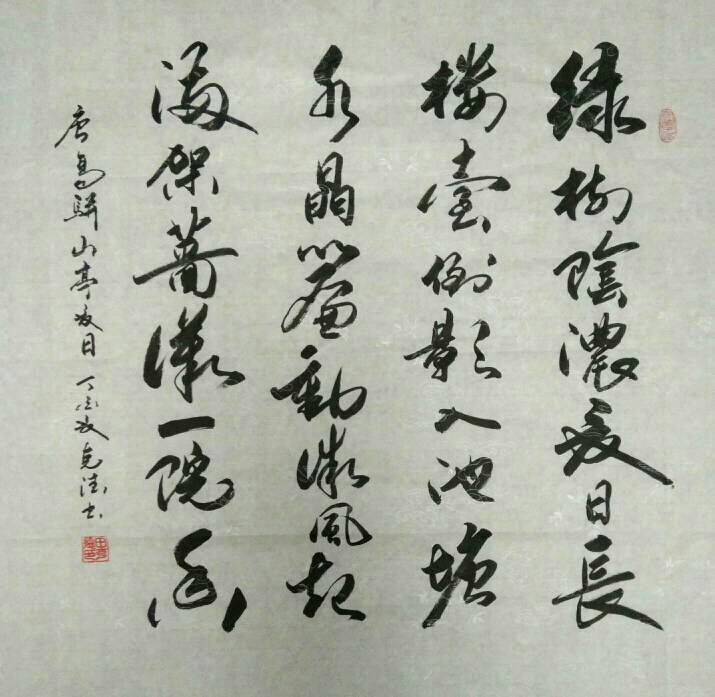 綠樹陰濃夏日長
樓臺倒影入池塘
水晶簾動微風起
滿架薔薇一院香
唐高駢山亭夏日 丁酉夏克德書